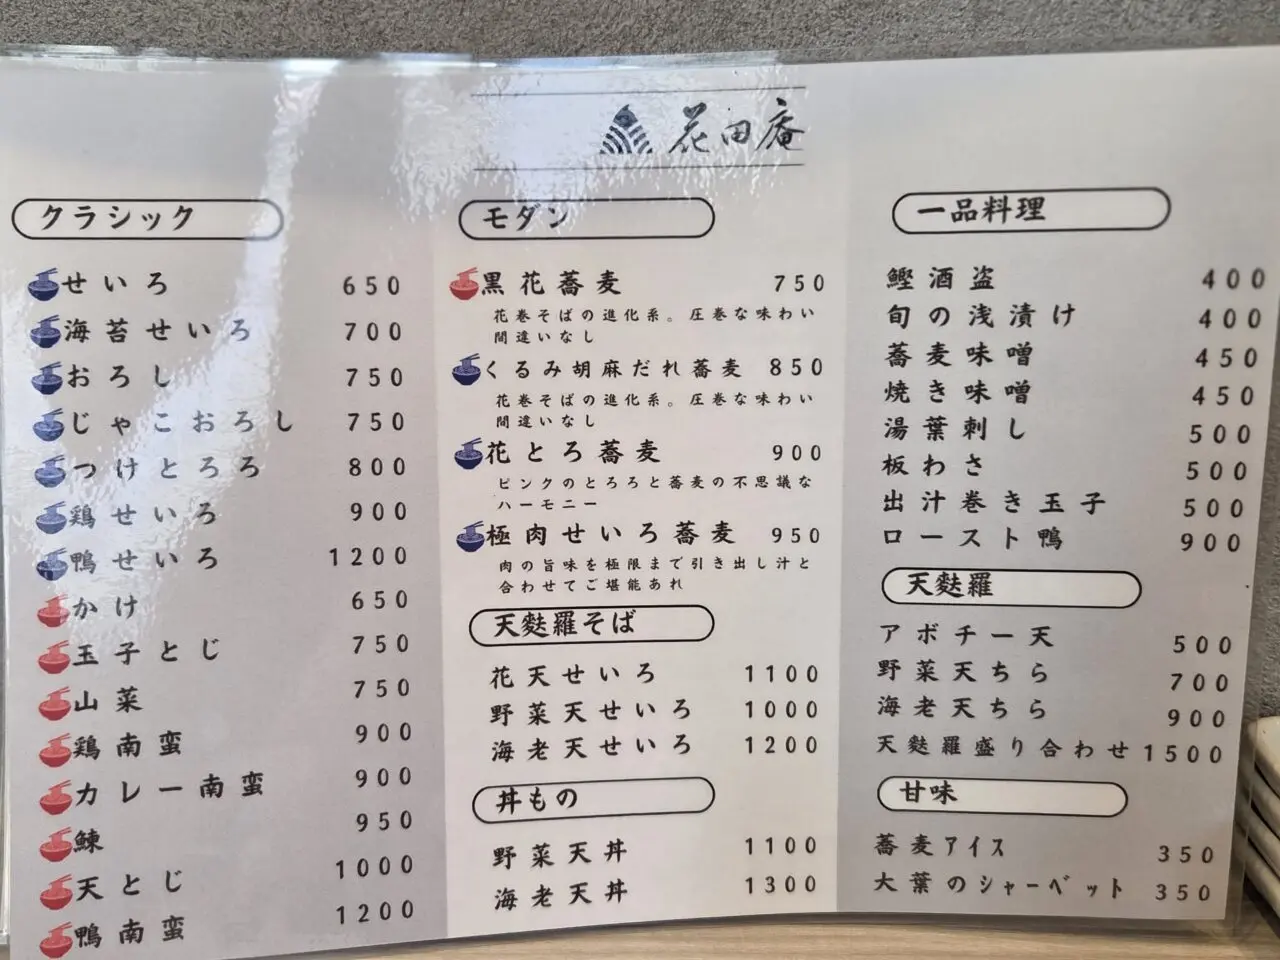 花田庵
クラシック
せいろ 650
海苔せいろ 700
おろし 750
じゃこおろし 750
つけとろろ 800
鶏せいろ 900
鴨せいろ 1200
かけ 650
玉子とじ 750
山菜 750
鶏南蛮 900
カレー南蛮 900
鰊 950
天とじ 1000
鴨南蛮 1200
モダン
黒花蕎麦 750
花巻そばの進化系。圧巻な味わい
間違いなし
くるみ胡麻だれ蕎麦 850
花巻そばの進化系。圧巻な味わい
間違いなし
花とろ蕎麦 900
ピンクのとろろと蕎麦の不思議な
ハーモニー
極肉せいろ蕎麦 950
肉の旨味を極限まで引き出し汁と
合わせてご堪能あれ
天麩羅そば
花天せいろ 1100
野菜天せいろ 1000
海老天せいろ 1200
丼もの
野菜天丼 1100
海老天丼 1300
一品料理
鰹酒盗 400
旬の浅漬け 400
蕎麦味噌 450
焼き味噌 450
湯葉刺し 500
板わさ 500
出汁巻き玉子 500
ロースト鴨 900
天麩羅
アボチー天 500
野菜天ちら 700
海老天ちら 900
天麩羅盛り合わせ 1500
甘味
蕎麦アイス 350
大葉のシャーベット 350